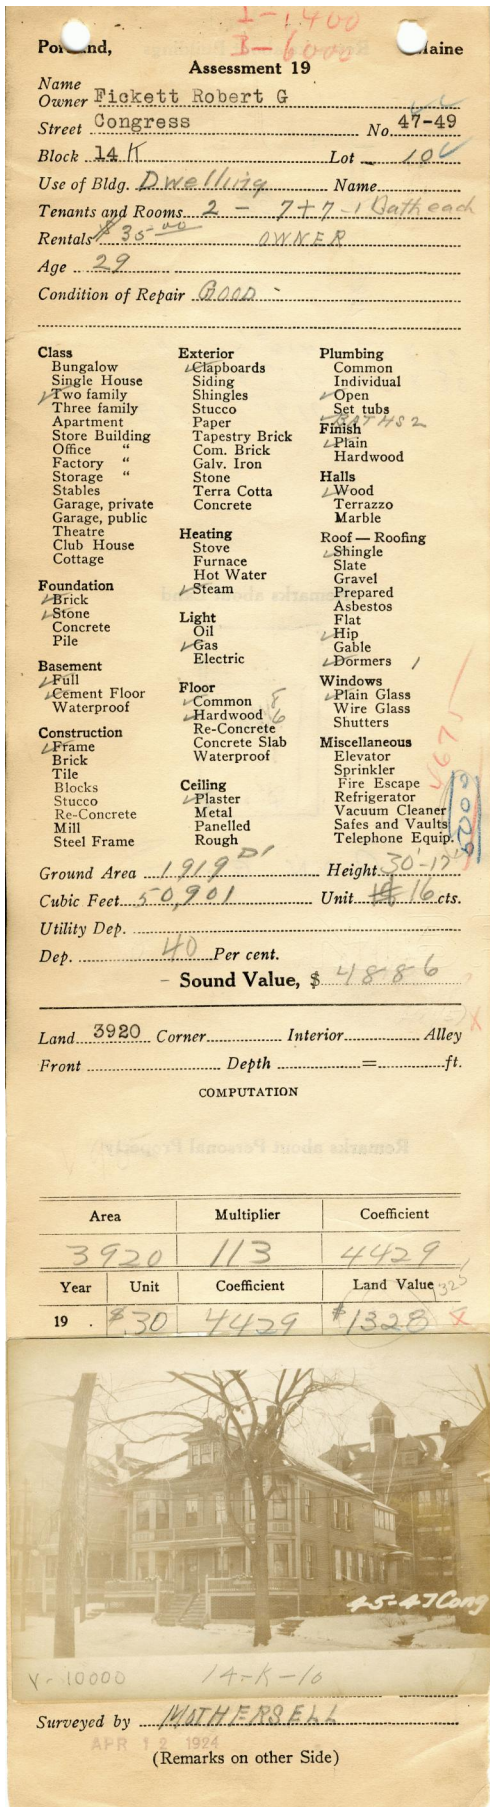 1-1400
3-6000
Portland, Maine
Assessment 19
Name
Owner Fickett Robert G
Street Congress No. 47-49
Block 14 K Lot 10
Use of Bldg. Dwelling Name
Tenants and Rooms 2 - 7+7-1 Bath each
Rentals $35.00 OWNER
Age 29
Condition of Repair GOOD -
Class
Bungalow
Single House
✓Two family
Three family
Apartment
Store Building
Office "
Factory "
Storage "
Stables
Garage, private
Garage, public
Theatre
Club House
Cottage
Foundation
✓Brick
✓Stone
Concrete
Pile
Basement
✓Full
✓Cement Floor
Waterproof
Construction
✓Frame
Brick
Tile
Blocks
Stucco
Re-Concrete
Mill
Steel Frame
Exterior
✓Clapboards
Siding
Shingles
Stucco
Paper
Tapestry Brick
Com. Brick
Galv. Iron
Stone
Terra Cotta
Concrete
Heating
Stove
Furnace
Hot Water
✓Steam
Light
Oil
✓Gas
Electric
Floor
✓Common
✓Hardwood
Re-Concrete
Concrete Slab
Waterproof
Ceiling
✓Plaster
Metal
Panelled
Rough
Plumbing
Common
Individual
✓Open
Set tubs
✓BATHS 2
Finish
✓Plain
Hardwood
Halls
✓Wood
Terrazzo
Marble
Roof — Roofing
✓Shingle
Slate
Gravel
Prepared
Asbestos
Flat
✓Hip
Gable
✓Dormers 1
Windows
✓Plain Glass
Wire Glass
Shutters
Miscellaneous
Elevator
Sprinkler
Fire Escape
Refrigerator
Vacuum Cleaner
Safes and Vaults
Telephone Equip.
4675
6200
Ground Area 1919 Height 30'-17'
Cubic Feet 50,901 Unit 16 cts.
Utility Dep.
Dep. 40 Per cent.
- Sound Value, $ 4886
Land 3920 Corner Interior Alley
Front Depth = ft.
COMPUTATION
Area Multiplier Coefficient
3920 113 4429
Year Unit Coefficient Land Value 325
19 . $.30 4429 $1328 x
45-47 Cong
V-10000 14-K-10
Surveyed by MOTHERSELL
APR 12 1924
(Remarks on other Side)